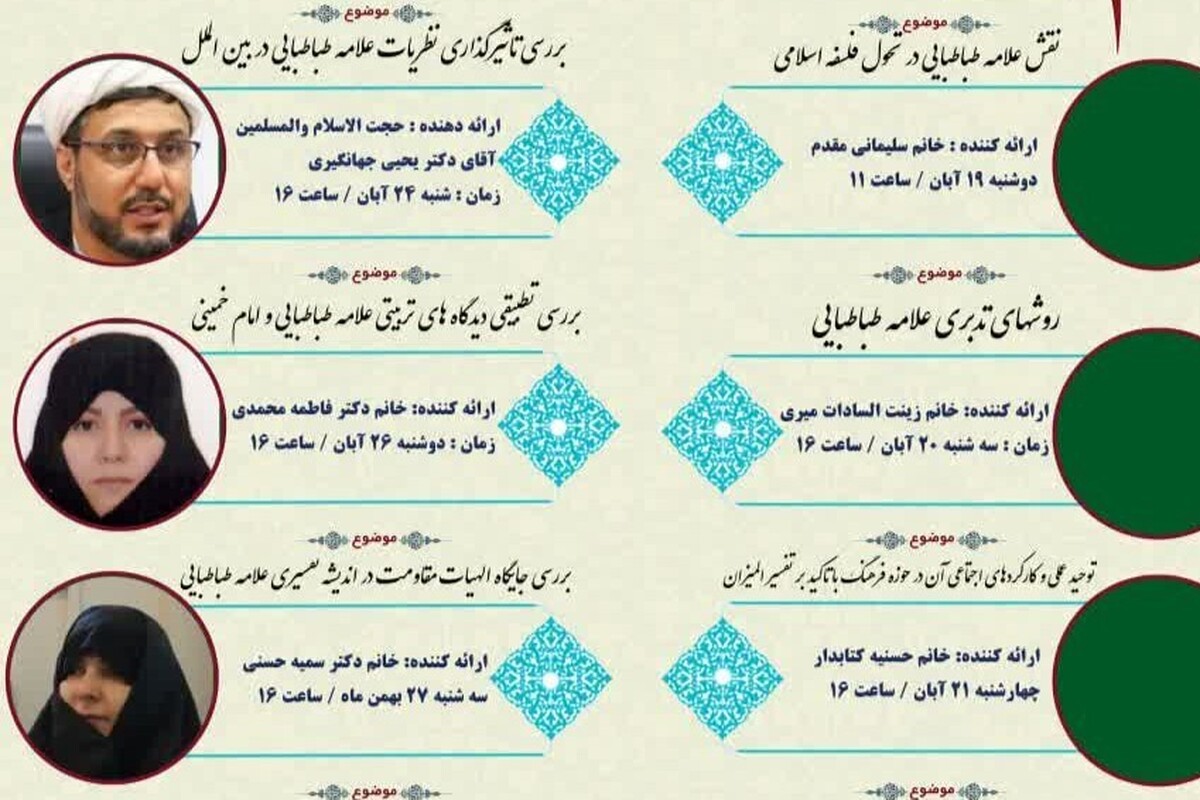 موضوع
نقش علامه طباطبایی در تحول فلسفه اسلامی
ارائه کننده : خانم سلیمانی مقدم
دوشنبه ۱۹ آبان / ساعت ۱۱
موضوع
بررسی تاثیرگذاری نظریات علامه طباطبایی در بین الملل
ارائه دهنده : حجت الاسلام والمسلمین
آقای دکتر یحیی جهانگیری
زمان : شنبه ۲۴ آبان / ساعت ۱۶
موضوع
روشهای تدبری علامه طباطبایی
ارائه کننده: خانم زینت السادات میری
زمان : سه شنبه ۲۰ آبان / ساعت ۱۶
موضوع
بررسی تطبیقی دیدگاه های تربیتی علامه طباطبایی و امام خمینی
ارائه کننده: خانم دکتر فاطمه محمدی
زمان : دوشنبه ۲۶ آبان / ساعت ۱۶
موضوع
توحید عملی و کارکردهای اجتماعی آن در حوزه فرهنگ با تاکید بر تفسیر المیزان
ارائه کننده: خانم حسنیه کتابدار
چهارشنبه ۲۱ آبان / ساعت ۱۶
موضوع
بررسی جایگاه الهیات مقاومت در اندیشه تفسیری علامه طباطبایی
ارائه کننده: خانم دکتر سمیه حسنی
سه شنبه ۲۷ بهمن ماه / ساعت ۱۶
موضوع
موضوع